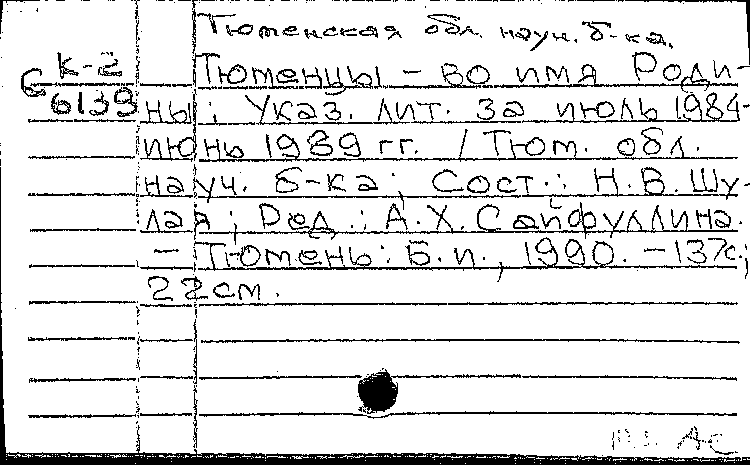 Тюменская обл. науч. б-ка.
К-2
С 6139
Тюменцы – во имя Роди-
ны: Указ. лит. за июль 1984-
июнь 1989 гг. / Тюм. обл.
науч. б-ка; Сост.: Н.В.Шу-
лая; Ред.: А.Х.Сайфуллина.
– Тюмень: Б.и., 1990. – 137с.;
22см.